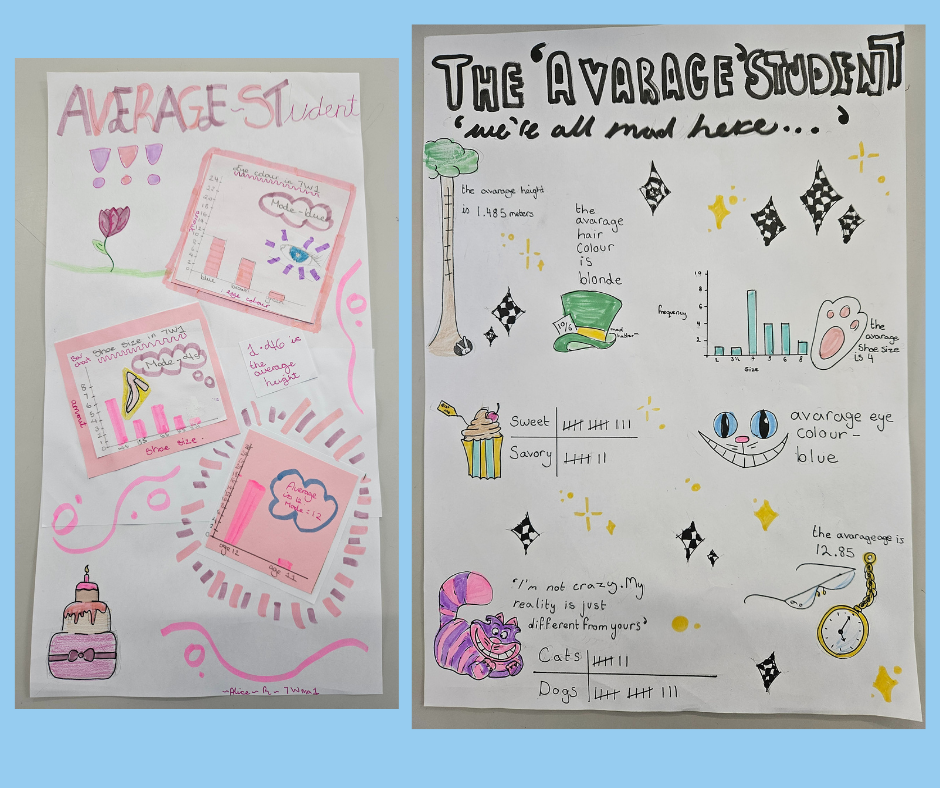 AVERAGE-STudent
!!!
eye colour in 7W1
Mode-blue
24
22
blue
brown
eye colour
Shoe size in 7W1
Mode
8
7
6
5
4
3
2
1
amount
Shoe size.
1.46 is
the
average
height
Average
is 12
Mode = 12
age 12
-Alice-B-7Wma1
THE 'AVARAGE' STUDENT
'we're all mad here...'
the avarage height
is 1.485 meters
the
avarage
hair
Colour
is
blonde
10/6
mad
hatter
frequency
8
6
4
2
2
3½
4
5
6
8
Size
the
avarage
Shoe size
is 4
Sweet
Savory
avarage eye
colour-
blue
the avarage age is
12.85
'I'm not crazy. My
reality is just
different from yours'
Cats
Dogs